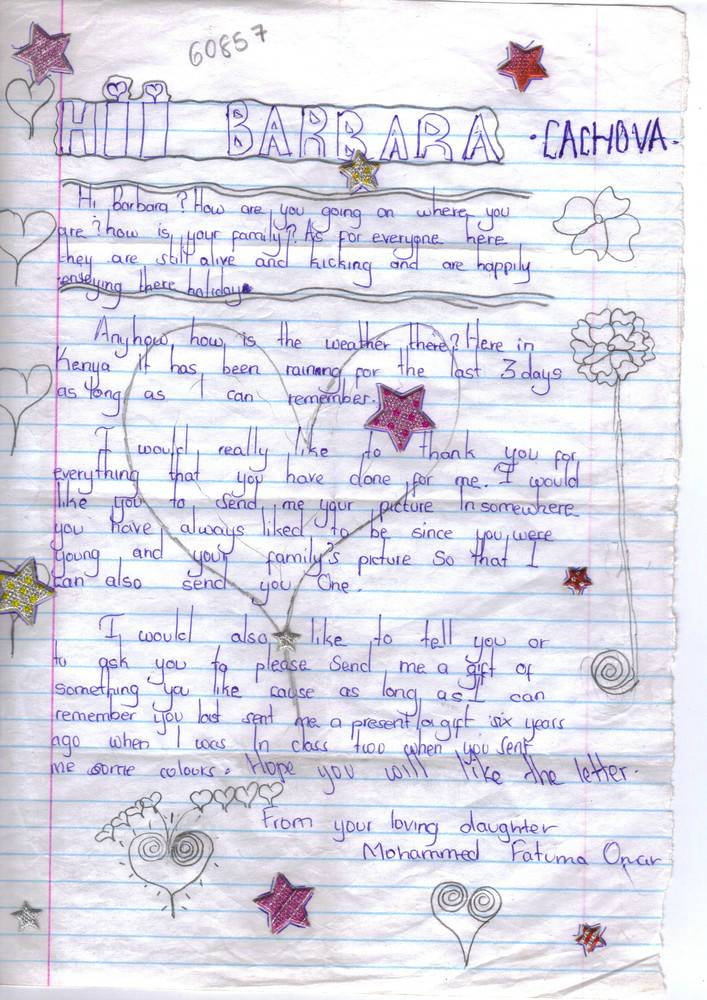 60857
HIII BARBARA ·CACHOVA·
Hi Barbara? How are you going on where you
are? how is your family? As for everyone here
they are still alive and kicking and are happily
enjoying there holiday.
Anyhow how is the weather there? Here in
Kenya It has been raining for the last 3 days
as long as I can remember.
I would really like to thank you for
everything that you have done for me. I would
like you to send me your picture In somewhere
you have always liked to be since you were
young and your family's picture So that I
can also send you One.
I would also like to tell you or
to ask you to please Send me a gift of
something you like cause as long as I can
remember you last sent me a present/a gift six years
ago when I was In class two when you sent
me some colours. Hope you will like the letter.
From your loving daughter
Mohammed Fatuma Omar